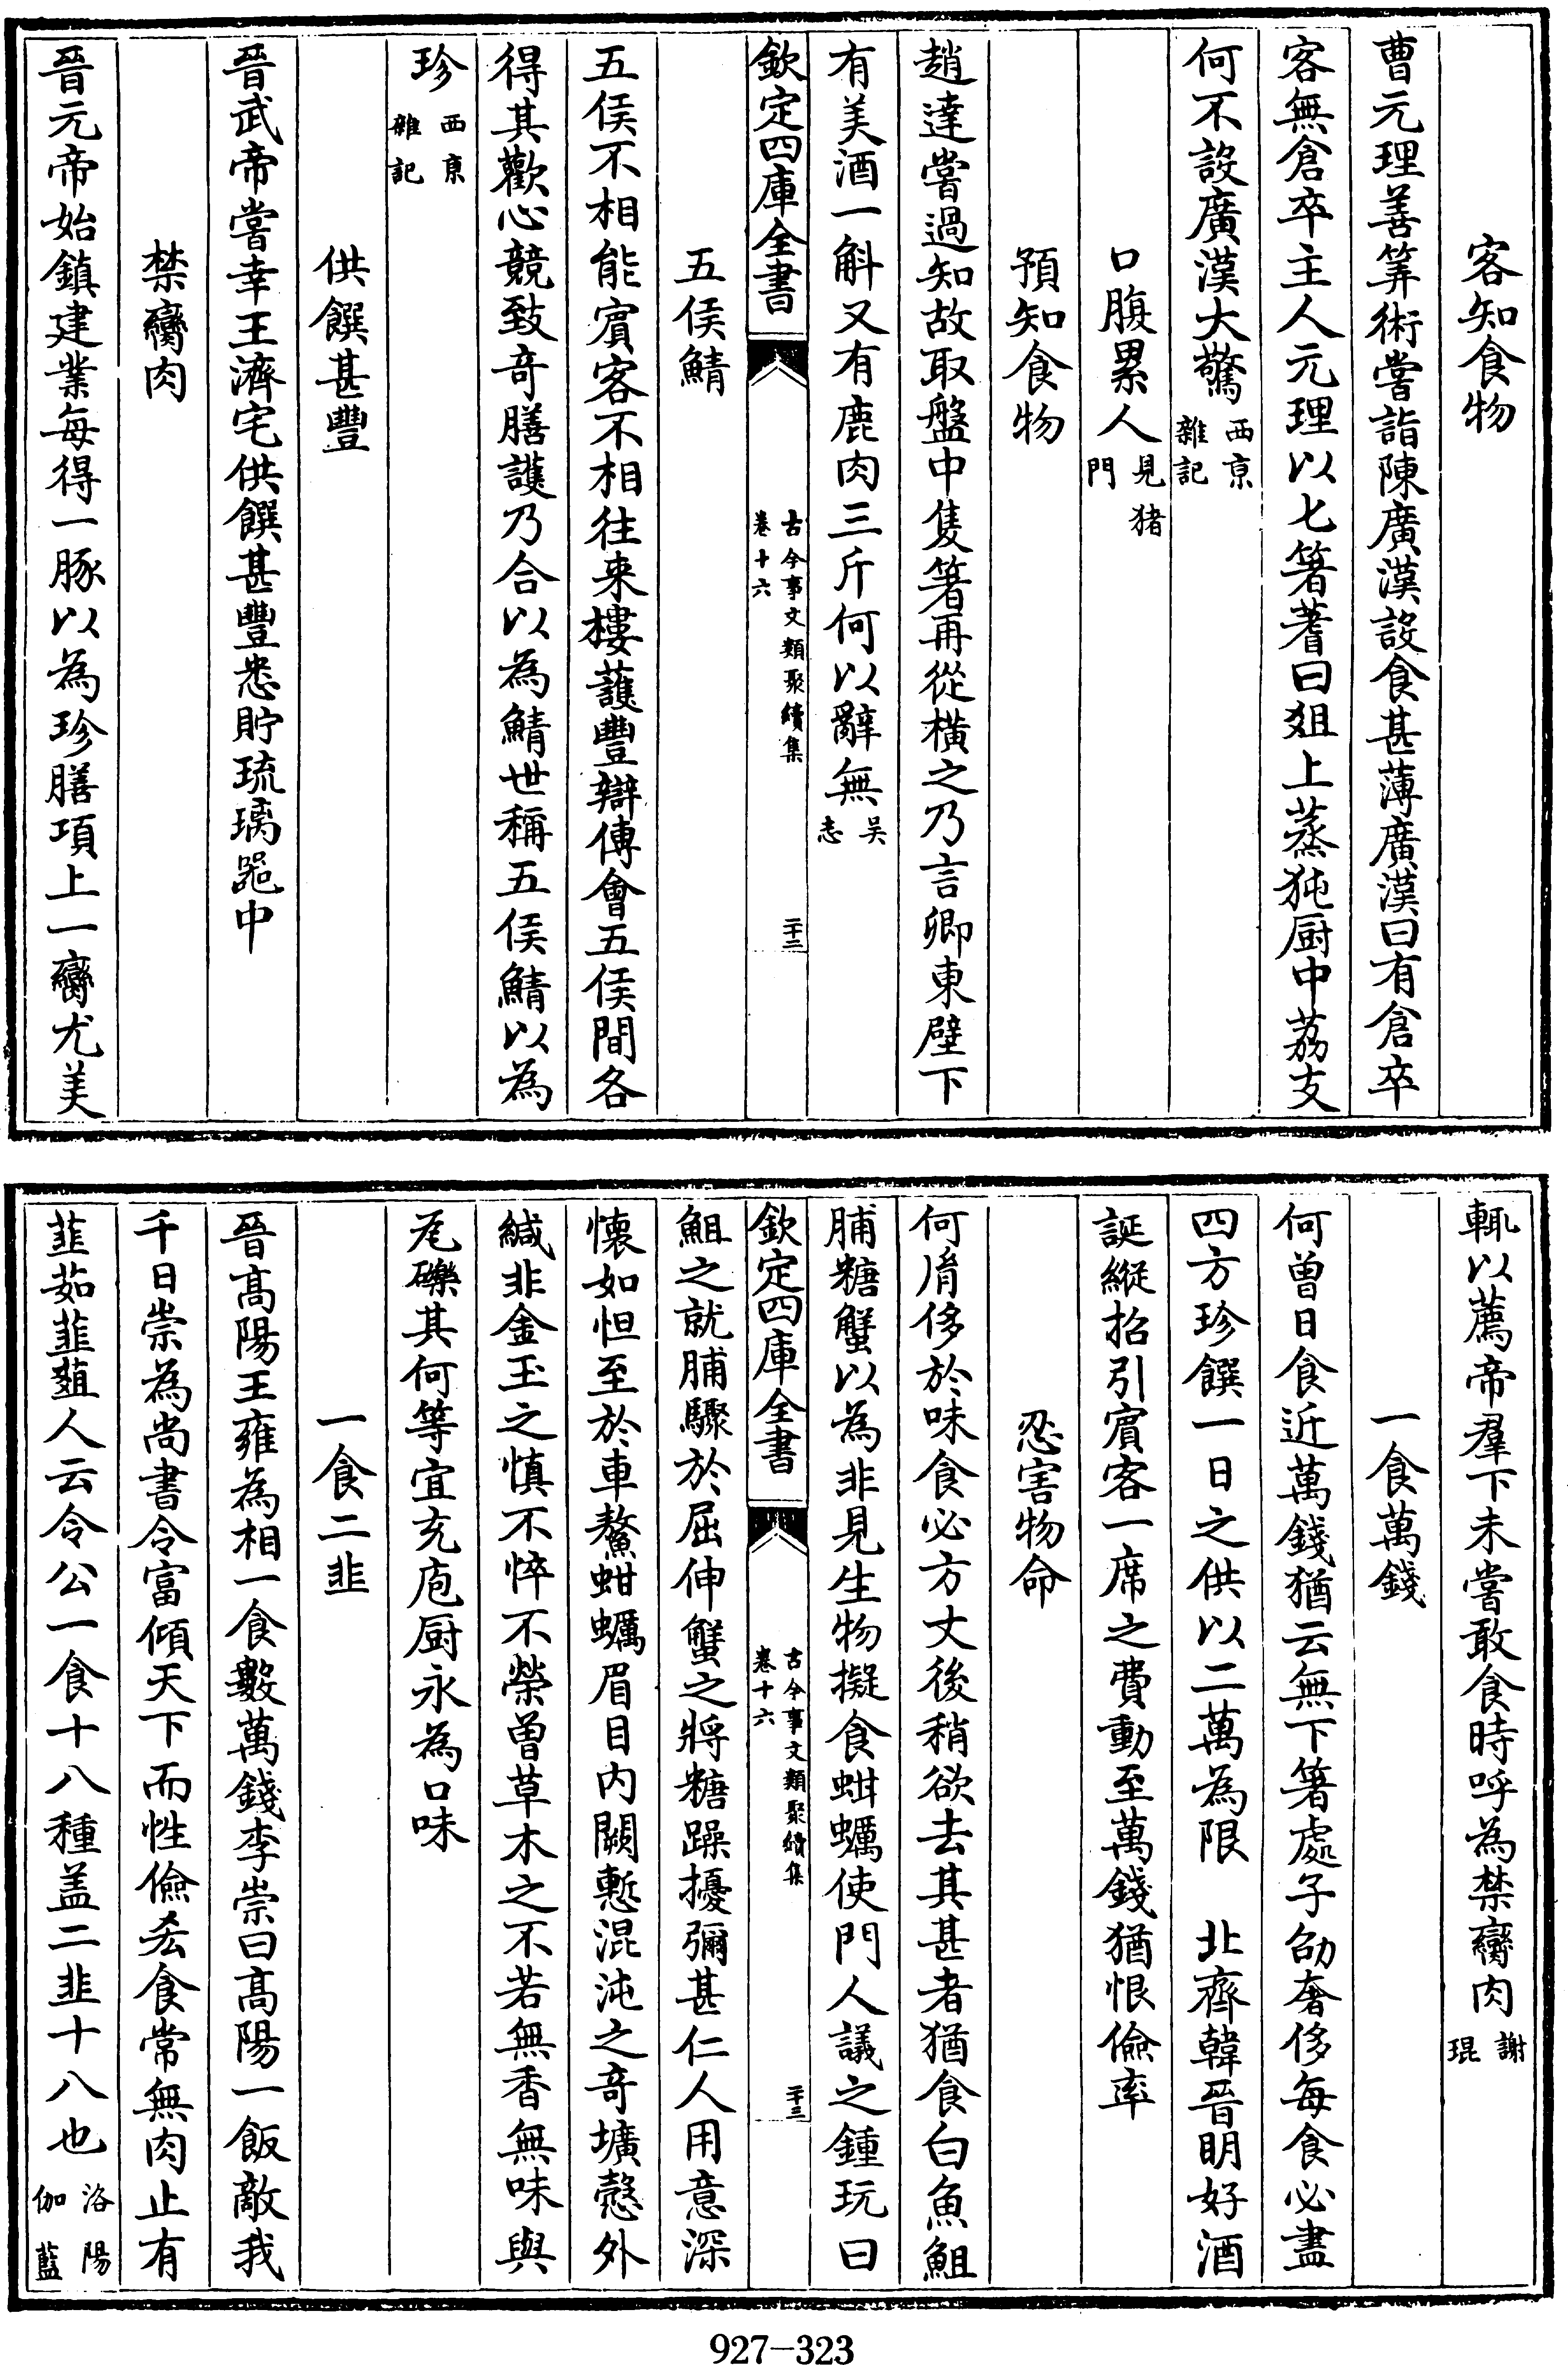 客知食物
曹元理善筭術嘗詣陳廣漢設食甚薄廣漢曰有倉卒
客無倉卒主人元理以七箸蓍曰俎上蒸㹠厨中茘支
何不設廣漢大驚西京雜記
口腹累人見猪門
預知食物
趙達嘗過知故取盤中隻箸再從橫之乃言卿東壁下
有美酒一斛又有鹿肉三斤何以辭無吴志
欽定四庫全書 古今事文類聚續集 卷十六 二十二
五侯鯖
五侯不相能賓客不相往来樓䕶豐辯傳會五侯間各
得其歡心競致竒膳護乃合以為鯖世稱五侯鯖以為
珍西京雜記
供饌甚豐
晉武帝嘗幸王濟宅供饌甚豐悉貯琉璃噐中
禁臠肉
晉元帝始鎮建業每得一豚以為珍膳項上一臠尤美
輒以薦帝羣下未嘗敢食時呼為禁臠肉謝琨
一食萬錢
何曽日食近萬錢猶云無下箸處子劭奢侈每食必盡
四方珍饌一日之供以二萬為限 北齊韓晉明好酒
誕縱招引賓客一席之費動至萬錢猶恨儉率
忍害物命
何㣧侈於味食必方丈後稍欲去其甚者猶食白魚䱉
脯糖蟹以為非見生物擬食蚶蠣使門人議之鍾玩曰
欽定四庫全書 古今事文類聚續集 卷十六 二十三
䱉之就脯驟於屈伸蟹之將糖躁擾彌甚仁人用意深
懐如怛至於車螯蚶蠣眉目内闕慙混沌之竒壙慤外
緘非金玉之慎不悴不榮曽草木之不若無香無味與
瓦礫其何等宜充庖厨永為口味
一食二韭
晉髙陽王雍為相一食數萬錢李崇曰髙陽一飯敵我
千日崇為尚書令富傾天下而性儉𠫤食常無肉止有
韭茹韭菹人云令公一食十八種盖二韭十八也洛陽伽藍
927-323